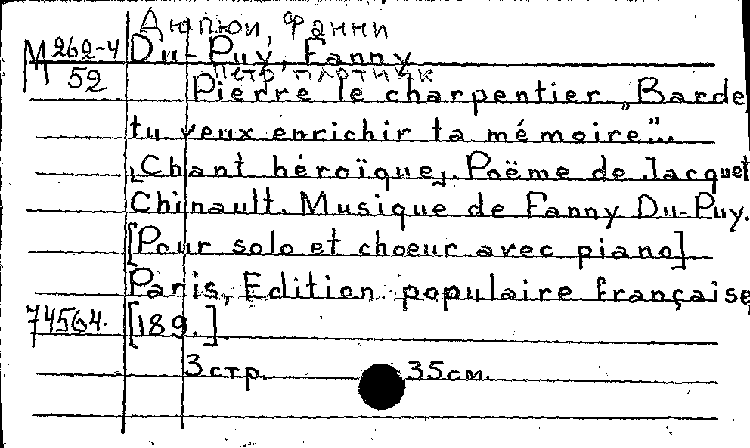 Дюпюи, Фанни
М 262-4 Du-Puy, Fanny
52 Петр, плотник
Pierre le charpentier „Barde
tu veux enrichir ta mémoire"...
„Chant héroïque„. Poëme de Jacquet
Chinault. Musique de Fanny Du-Puy.
[Pour solo et choeur avec piano]
Paris, Edition populaire française
74564. [189.]
3 стр. 35 см.